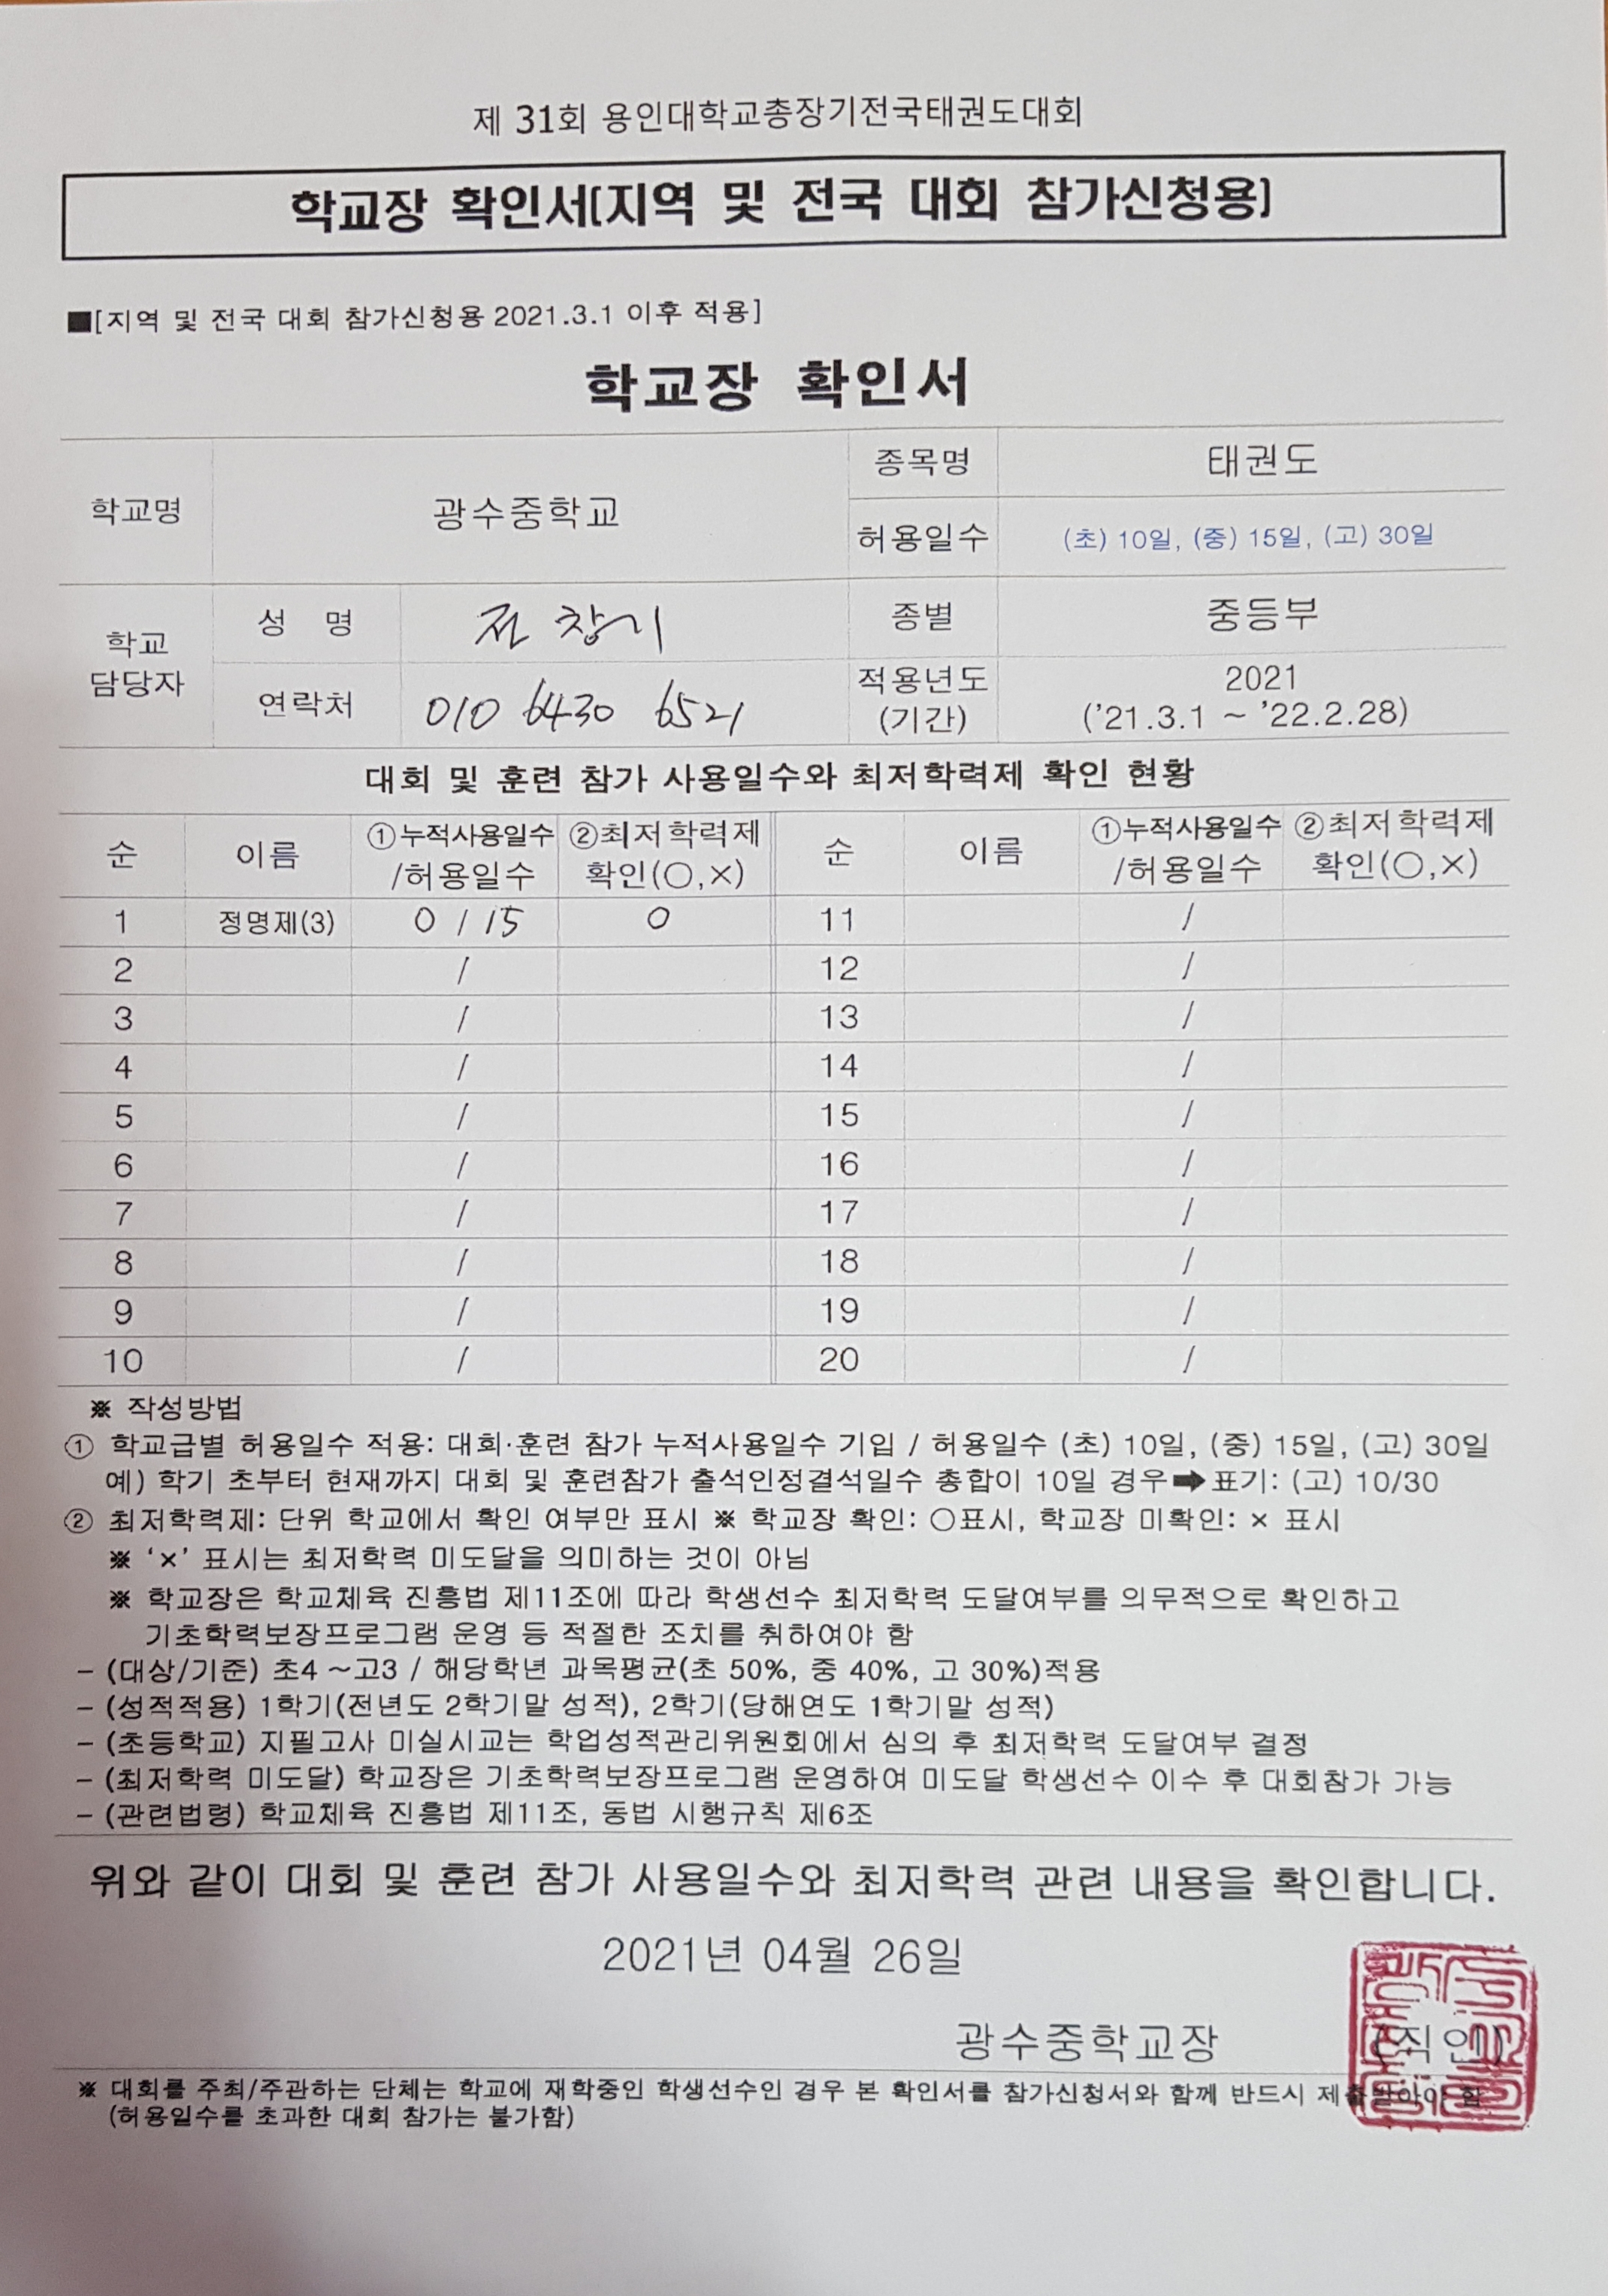 제 31회 용인대학교총장기전국태권도대회
학교장 확인서[지역 및 전국 대회 참가신청용]
■[지역 및 전국 대회 참가신청용 2021.3.1 이후 적용]
학교장 확인서
학교명 광수중학교 종목명 태권도
허용일수 (초) 10일, (중) 15일, (고) 30일
학교 담당자 성 명 전창기 종별 중등부
연락처 010 6430 6521 적용년도 (기간) 2021 ('21.3.1 ~ '22.2.28)
대회 및 훈련 참가 사용일수와 최저학력제 확인 현황
순 이름 ①누적사용일수 /허용일수 ②최저학력제 확인(○,×) 순 이름 ①누적사용일수 /허용일수 ②최저학력제 확인(○,×)
1 정명제(3) 0 / 15 0 11 /
2 / 12 /
3 / 13 /
4 / 14 /
5 / 15 /
6 / 16 /
7 / 17 /
8 / 18 /
9 / 19 /
10 / 20 /
※ 작성방법
① 학교급별 허용일수 적용: 대회·훈련 참가 누적사용일수 기입 / 허용일수 (초) 10일, (중) 15일, (고) 30일
예) 학기 초부터 현재까지 대회 및 훈련참가 출석인정결석일수 총합이 10일 경우➡표기: (고) 10/30
② 최저학력제: 단위 학교에서 확인 여부만 표시 ※ 학교장 확인: ○표시, 학교장 미확인: × 표시
※ '×' 표시는 최저학력 미도달을 의미하는 것이 아님
※ 학교장은 학교체육 진흥법 제11조에 따라 학생선수 최저학력 도달여부를 의무적으로 확인하고
기초학력보장프로그램 운영 등 적절한 조치를 취하여야 함
- (대상/기준) 초4 ~고3 / 해당학년 과목평균(초 50%, 중 40%, 고 30%)적용
- (성적적용) 1학기(전년도 2학기말 성적), 2학기(당해연도 1학기말 성적)
- (초등학교) 지필고사 미실시교는 학업성적관리위원회에서 심의 후 최저학력 도달여부 결정
- (최저학력 미도달) 학교장은 기초학력보장프로그램 운영하여 미도달 학생선수 이수 후 대회참가 가능
- (관련법령) 학교체육 진흥법 제11조, 동법 시행규칙 제6조
위와 같이 대회 및 훈련 참가 사용일수와 최저학력 관련 내용을 확인합니다.
2021년 04월 26일
광수중학교장 (직인)
※ 대회를 주최/주관하는 단체는 학교에 재학중인 학생선수인 경우 본 확인서를 참가신청서와 함께 반드시 제출받아야 함
(허용일수를 초과한 대회 참가는 불가함)